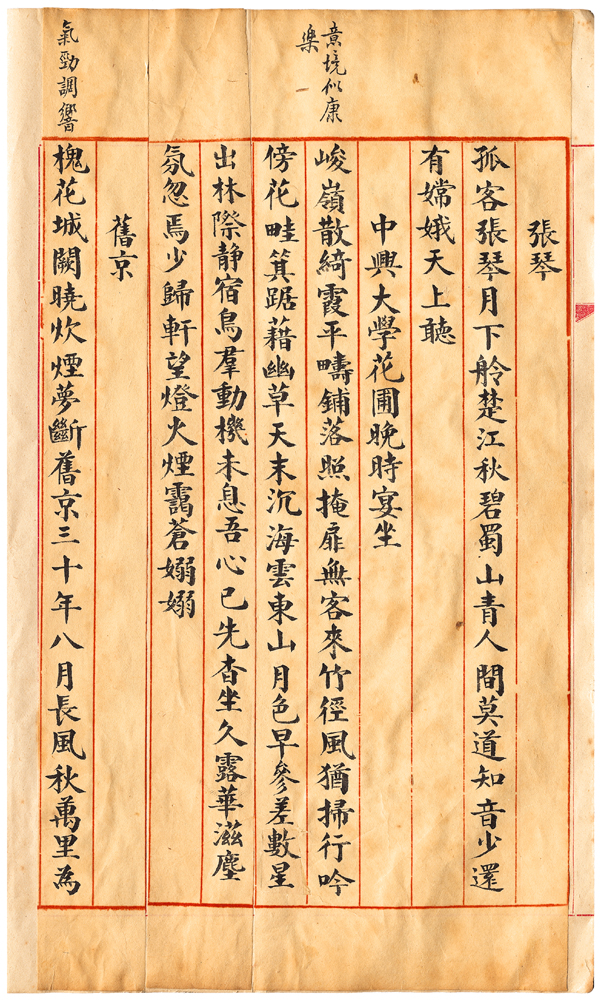 意境似康
樂
氣勁調響
張琴
孤客張琴月下舲楚江秋碧蜀山青人間莫道知音少還
有嫦娥天上聽
中興大學花圃晚時宴坐
峻嶺散綺霞平疇鋪落照掩扉無客來竹徑風猶掃行吟
傍花畦箕踞藉幽草天末沉海雲東山月色早參差數星
出林際静宿鳥羣動機未息吾心已先杳坐久露華滋塵
氛忽焉少歸軒望燈火煙靄蒼嫋嫋
舊京
槐花城闕曉炊煙夢斷舊京三十年八月長風秋萬里為